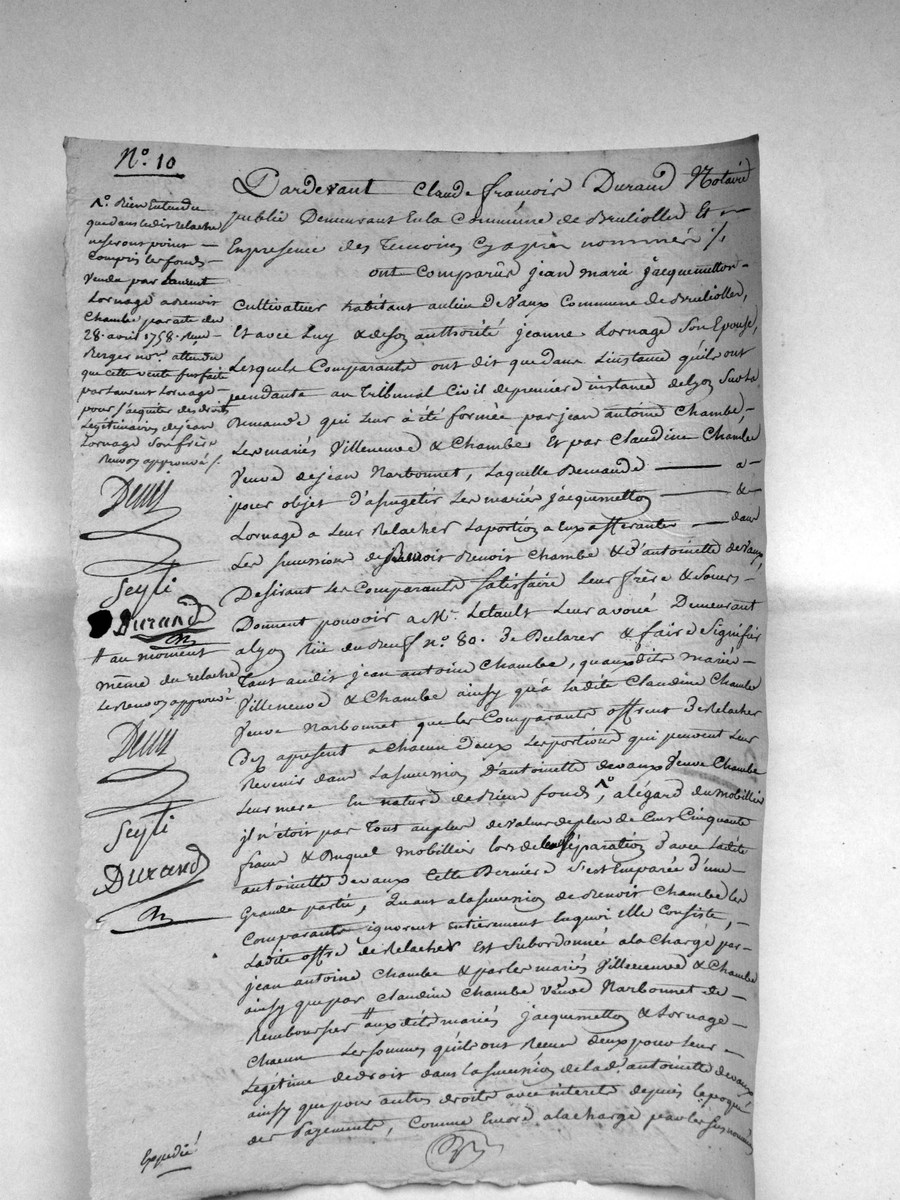 N.° 10
Pardevant Claude françois Durand Notaire
public Demeurant En la Commune de Brulioller Et
En presence des Temoins Cy apres nommés ·/.
ont comparûs jean marie jacquemetton
Cultivateur habitant au lieu de vaux Commune de Brulioller,
Et avec Luy & de son authorité jeanne Lornage Son Epouse,
Lesquels Comparants ont dit que dans L'instance qu'ils ont
pendante au Tribunal Civil de premiere instance de Lyon Sur la
Demande qui Leur à été formée par jean antoine Chambe,
Les mariés Villeneuve & Chambe Et par Claudine Chambe
Veuve de jean Narbonnet, Laquelle Demande — a —
pour objet d'assugetir Les mariés jacquemetton — & —
Lornage a Leur Relacher La portion a Eux afferante — dans
Les sucession de Benoit Chambe & d'antoinette devaux,
Desirant Les Comparants Satisfaire Leur frère & Soeurs
Donnent pouvoir a M.e Letault Leur avoué Demeurant
a Lyon Rüe du Boeuf n.° 80. De Declarer & faire Signifier
Tant audit jean antoine Chambe, qu'auxdits mariés
Villeneuve & Chambe ainsy qu'à Ladite Claudine Chambe
Veuve Narbonnet que les Comparants offrent De Relacher
Dez apresent a Chacun D'eux Les portions qui peuvent Leur
Revenir dans La sucession D'antoinette devaux Veuve Chambe
Leur mere En nature de Biens fonds, a Légard du mobillier
il n'étoit par Tout au plus de valeur de plus de Cent Cinquante
francs & Duquel mobillier lors de leur Séparation D'avec Ladite
antoinette devaux Cette Derniere S'est Emparée d'une
Grande partie, Quant a la sucession de Benoit Chambe les
Comparants ignorent entièrement En quoi elle Consiste,
Ladite offre de Relacher Est Subordonnée a la Charge par
jean antoine Chambe & par les mariés Villeneuve & Chambe
ainsy que par Claudine Chambe Veuve Narbonnet de
Rembourser # auxdits mariés jacquemetton & Lornage
Chacun Les sommes qu'ils ont Recue D'eux pour Leur
Légitime de droit dans La sucession de lad. antoinette devaux
ainsy que pour autres droits avec interets depuis L'epoque
des Payements, Comme Encore a la charge par les susnommés
Rien Entendu
que dans Ledit Relache
ne seront point
Compris les fonds
Vendu par Laurent
Lornage a Benoit
Chambe par acte du
28. avril 1758. Reçu
Berger no.re attendu
que cette vente fut faite
par Laurent Lornage
pour s'acquiter des droits
Légitimaires de jean
Lornage Son frère
Renvoy approuvé /.
Seyti
Durand
# au moment
même du relache
Le Renvoy approuvé
Seyti
Durand
Expedié